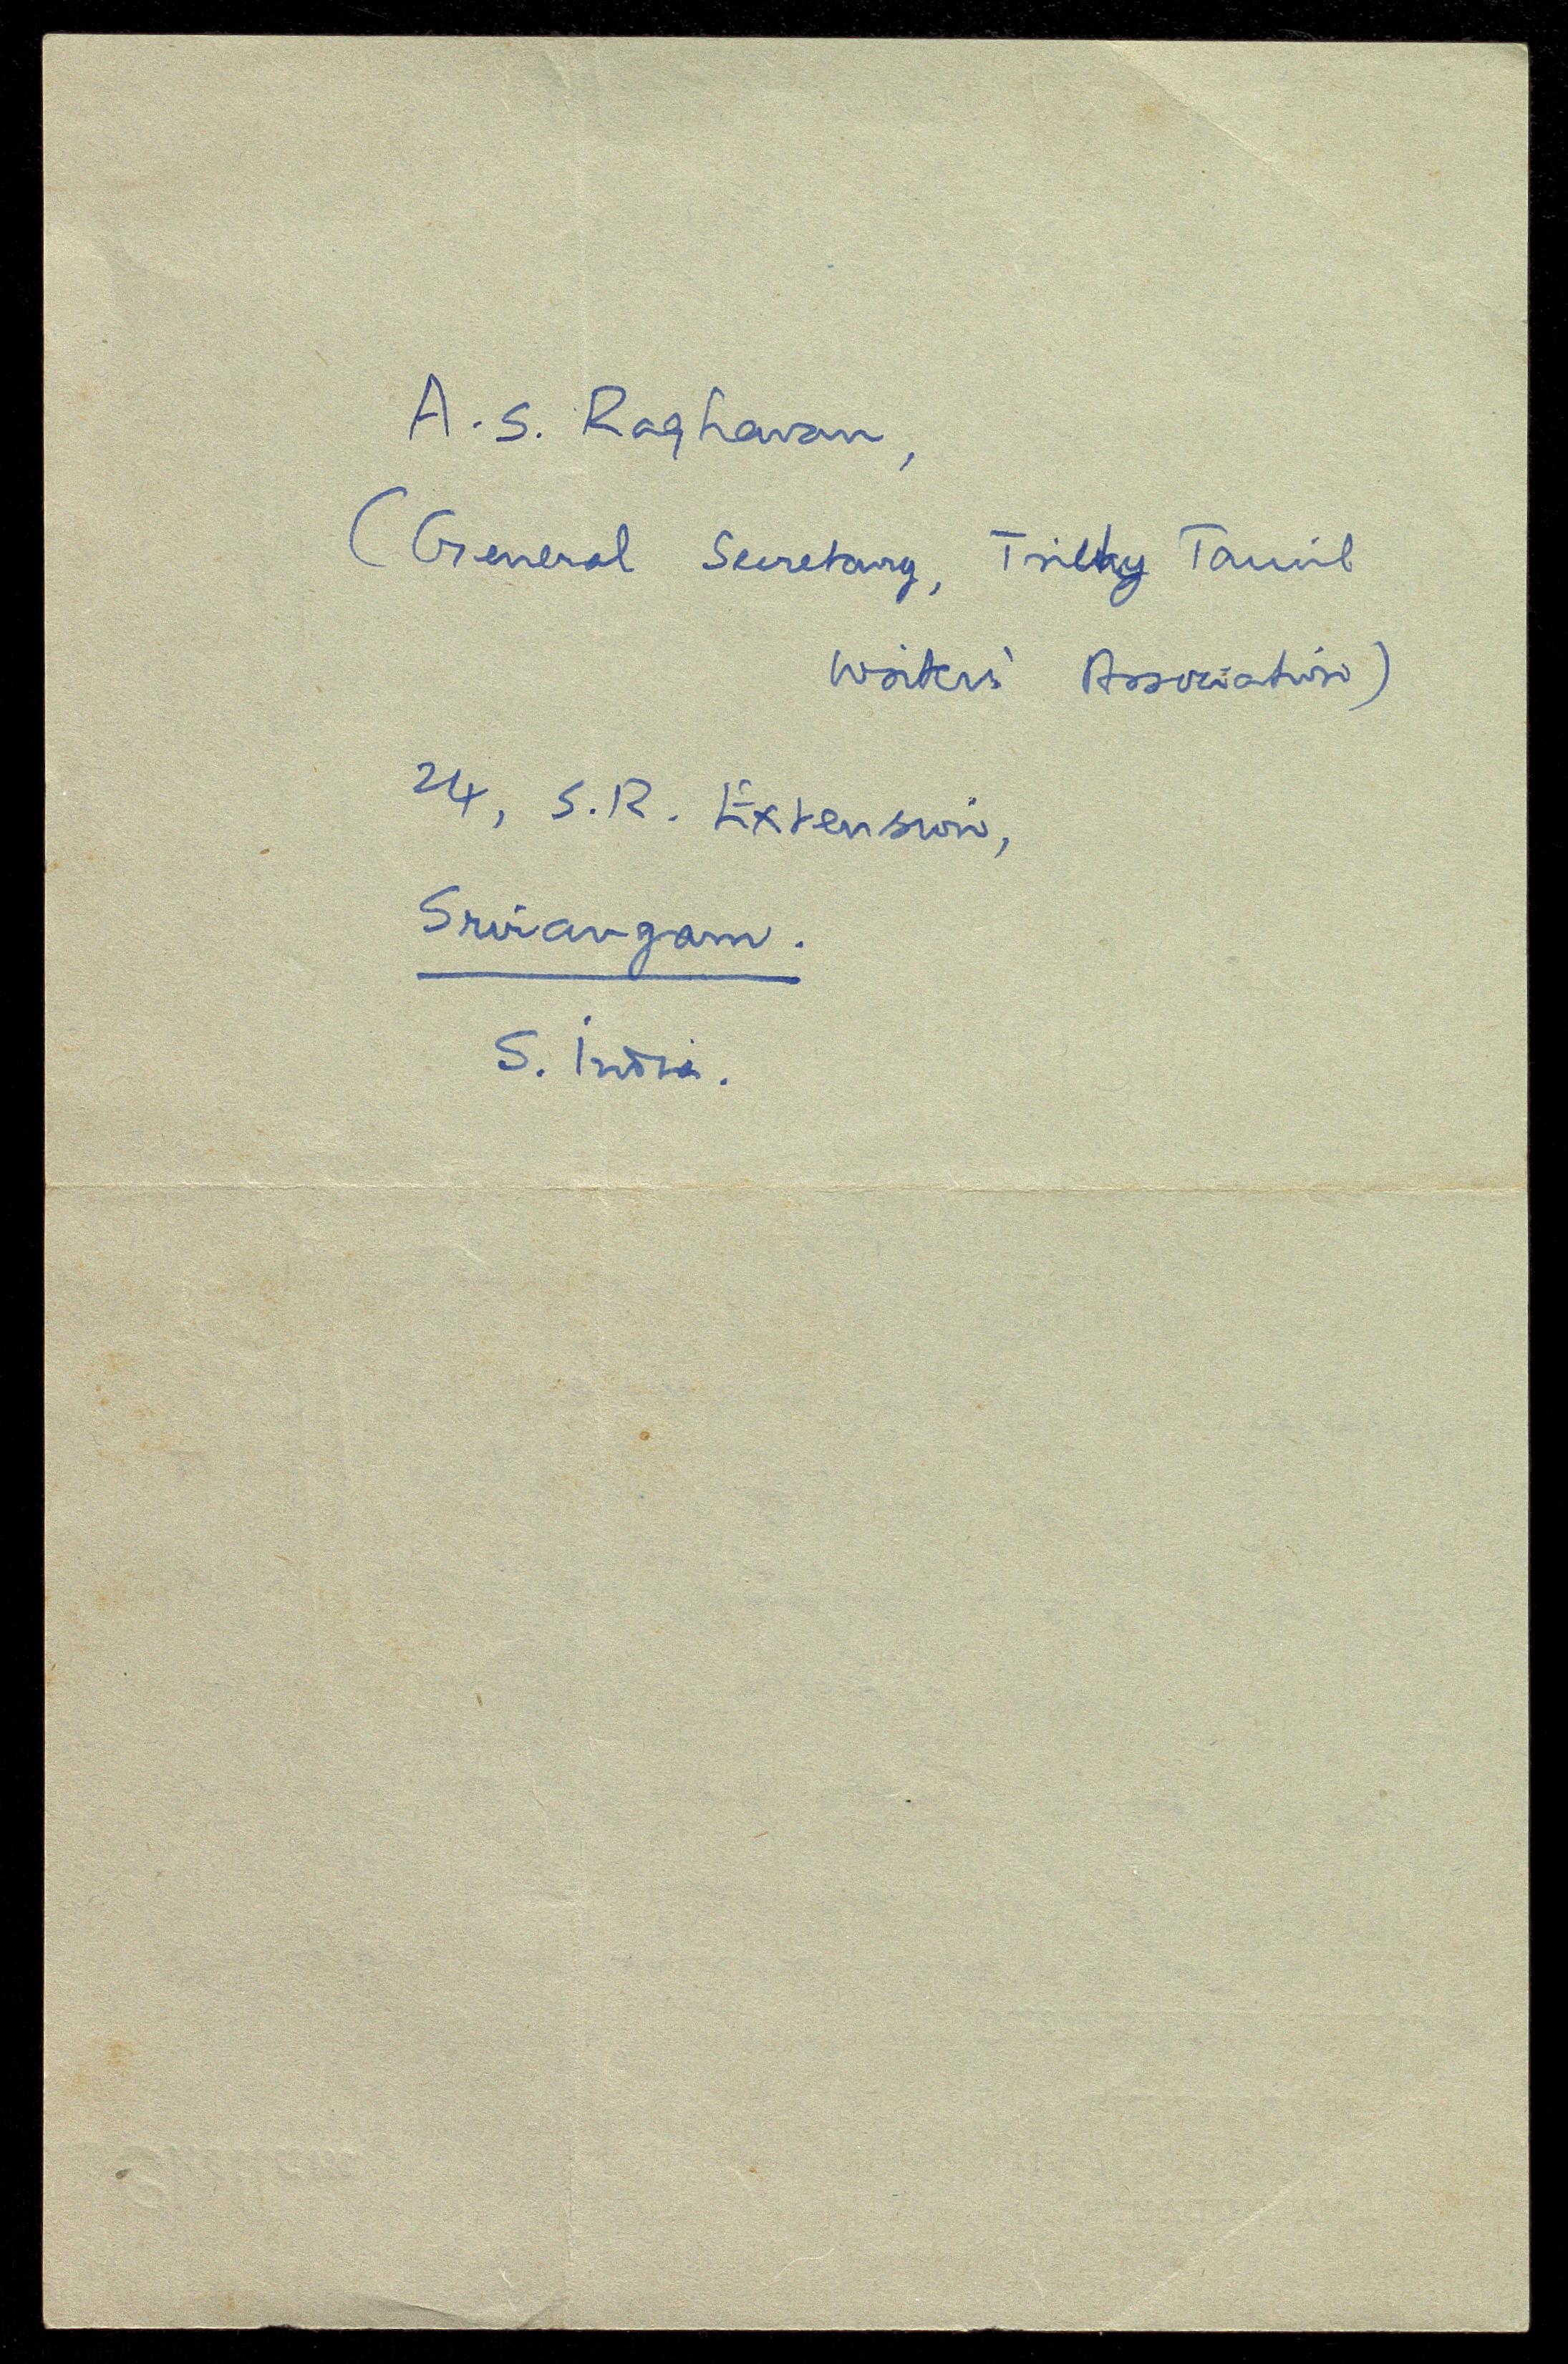 A. S. Raghavan,
(General Secretary, Trichy Tamil
Writers' Association)
24, S.R. Extension,
Srirangam.
S. India.